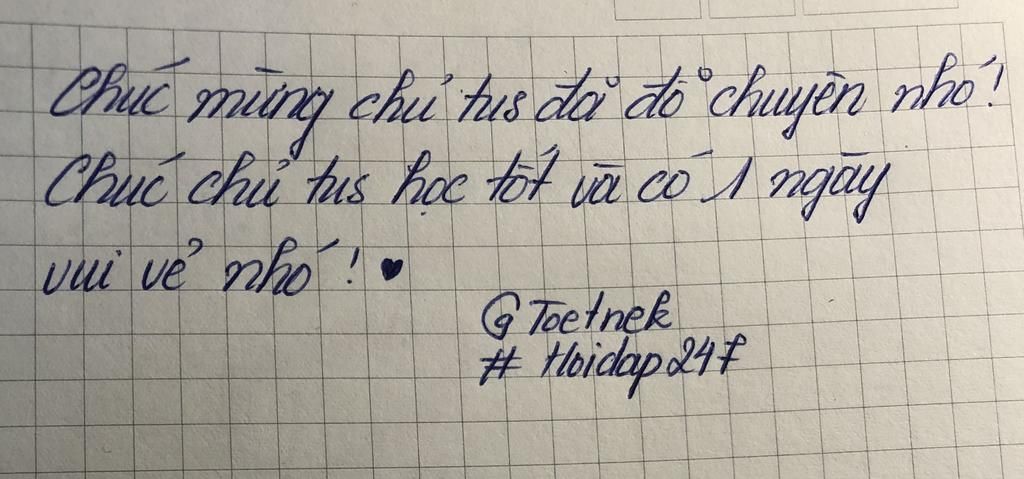 Chúc mừng chủ tus đã đỗ chuyên nhó!
Chúc chủ tus học tốt và có 1 ngày
vui vẻ nhó! ♥
@Toetnek
# Hoidap247